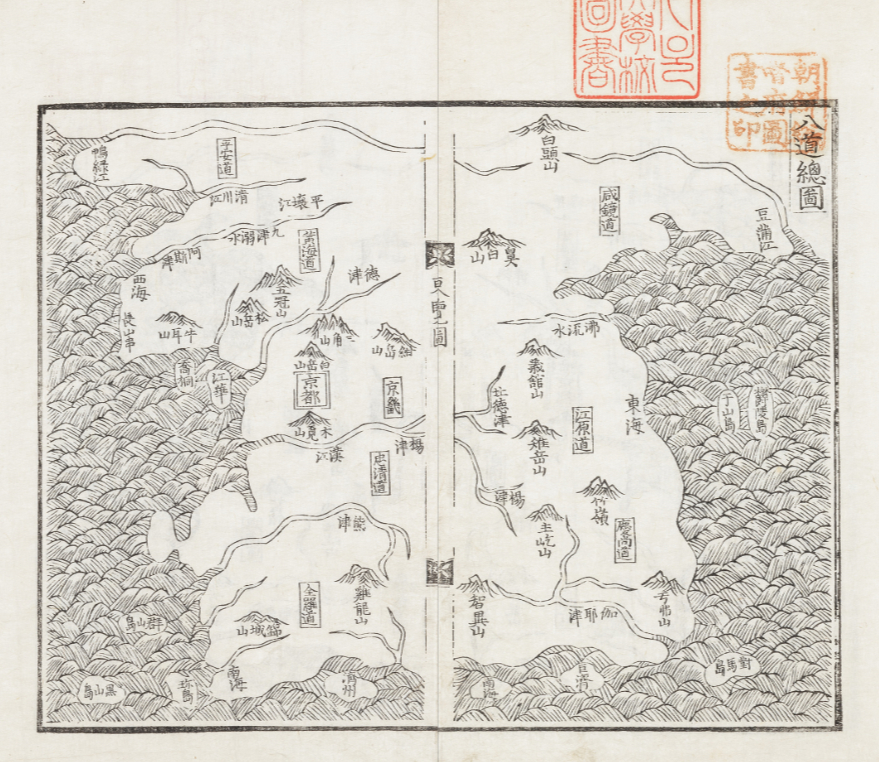 八道總圖
白頭山
咸鏡道
豆滿江
鼻白山
沸流水
東海
鬱陵島
于山島
江原道
雉岳山
楊津
竹嶺
主屹山
智異山
伽耶津
對馬島
巨濟
南海
平安道
鴨綠江
清川江
平壤江
九津溺水
阿斯津
黃海道
德津
西海
長山串
五冠山
松岳山
牛耳山
三角山
紺岳山
白岳山
京都
木覓山
京畿
喬桐
江華
漢江
楊津
忠清道
熊津
全羅道
雞龍山
錦城山
群山島
黑山島
珍島
南海
濟州